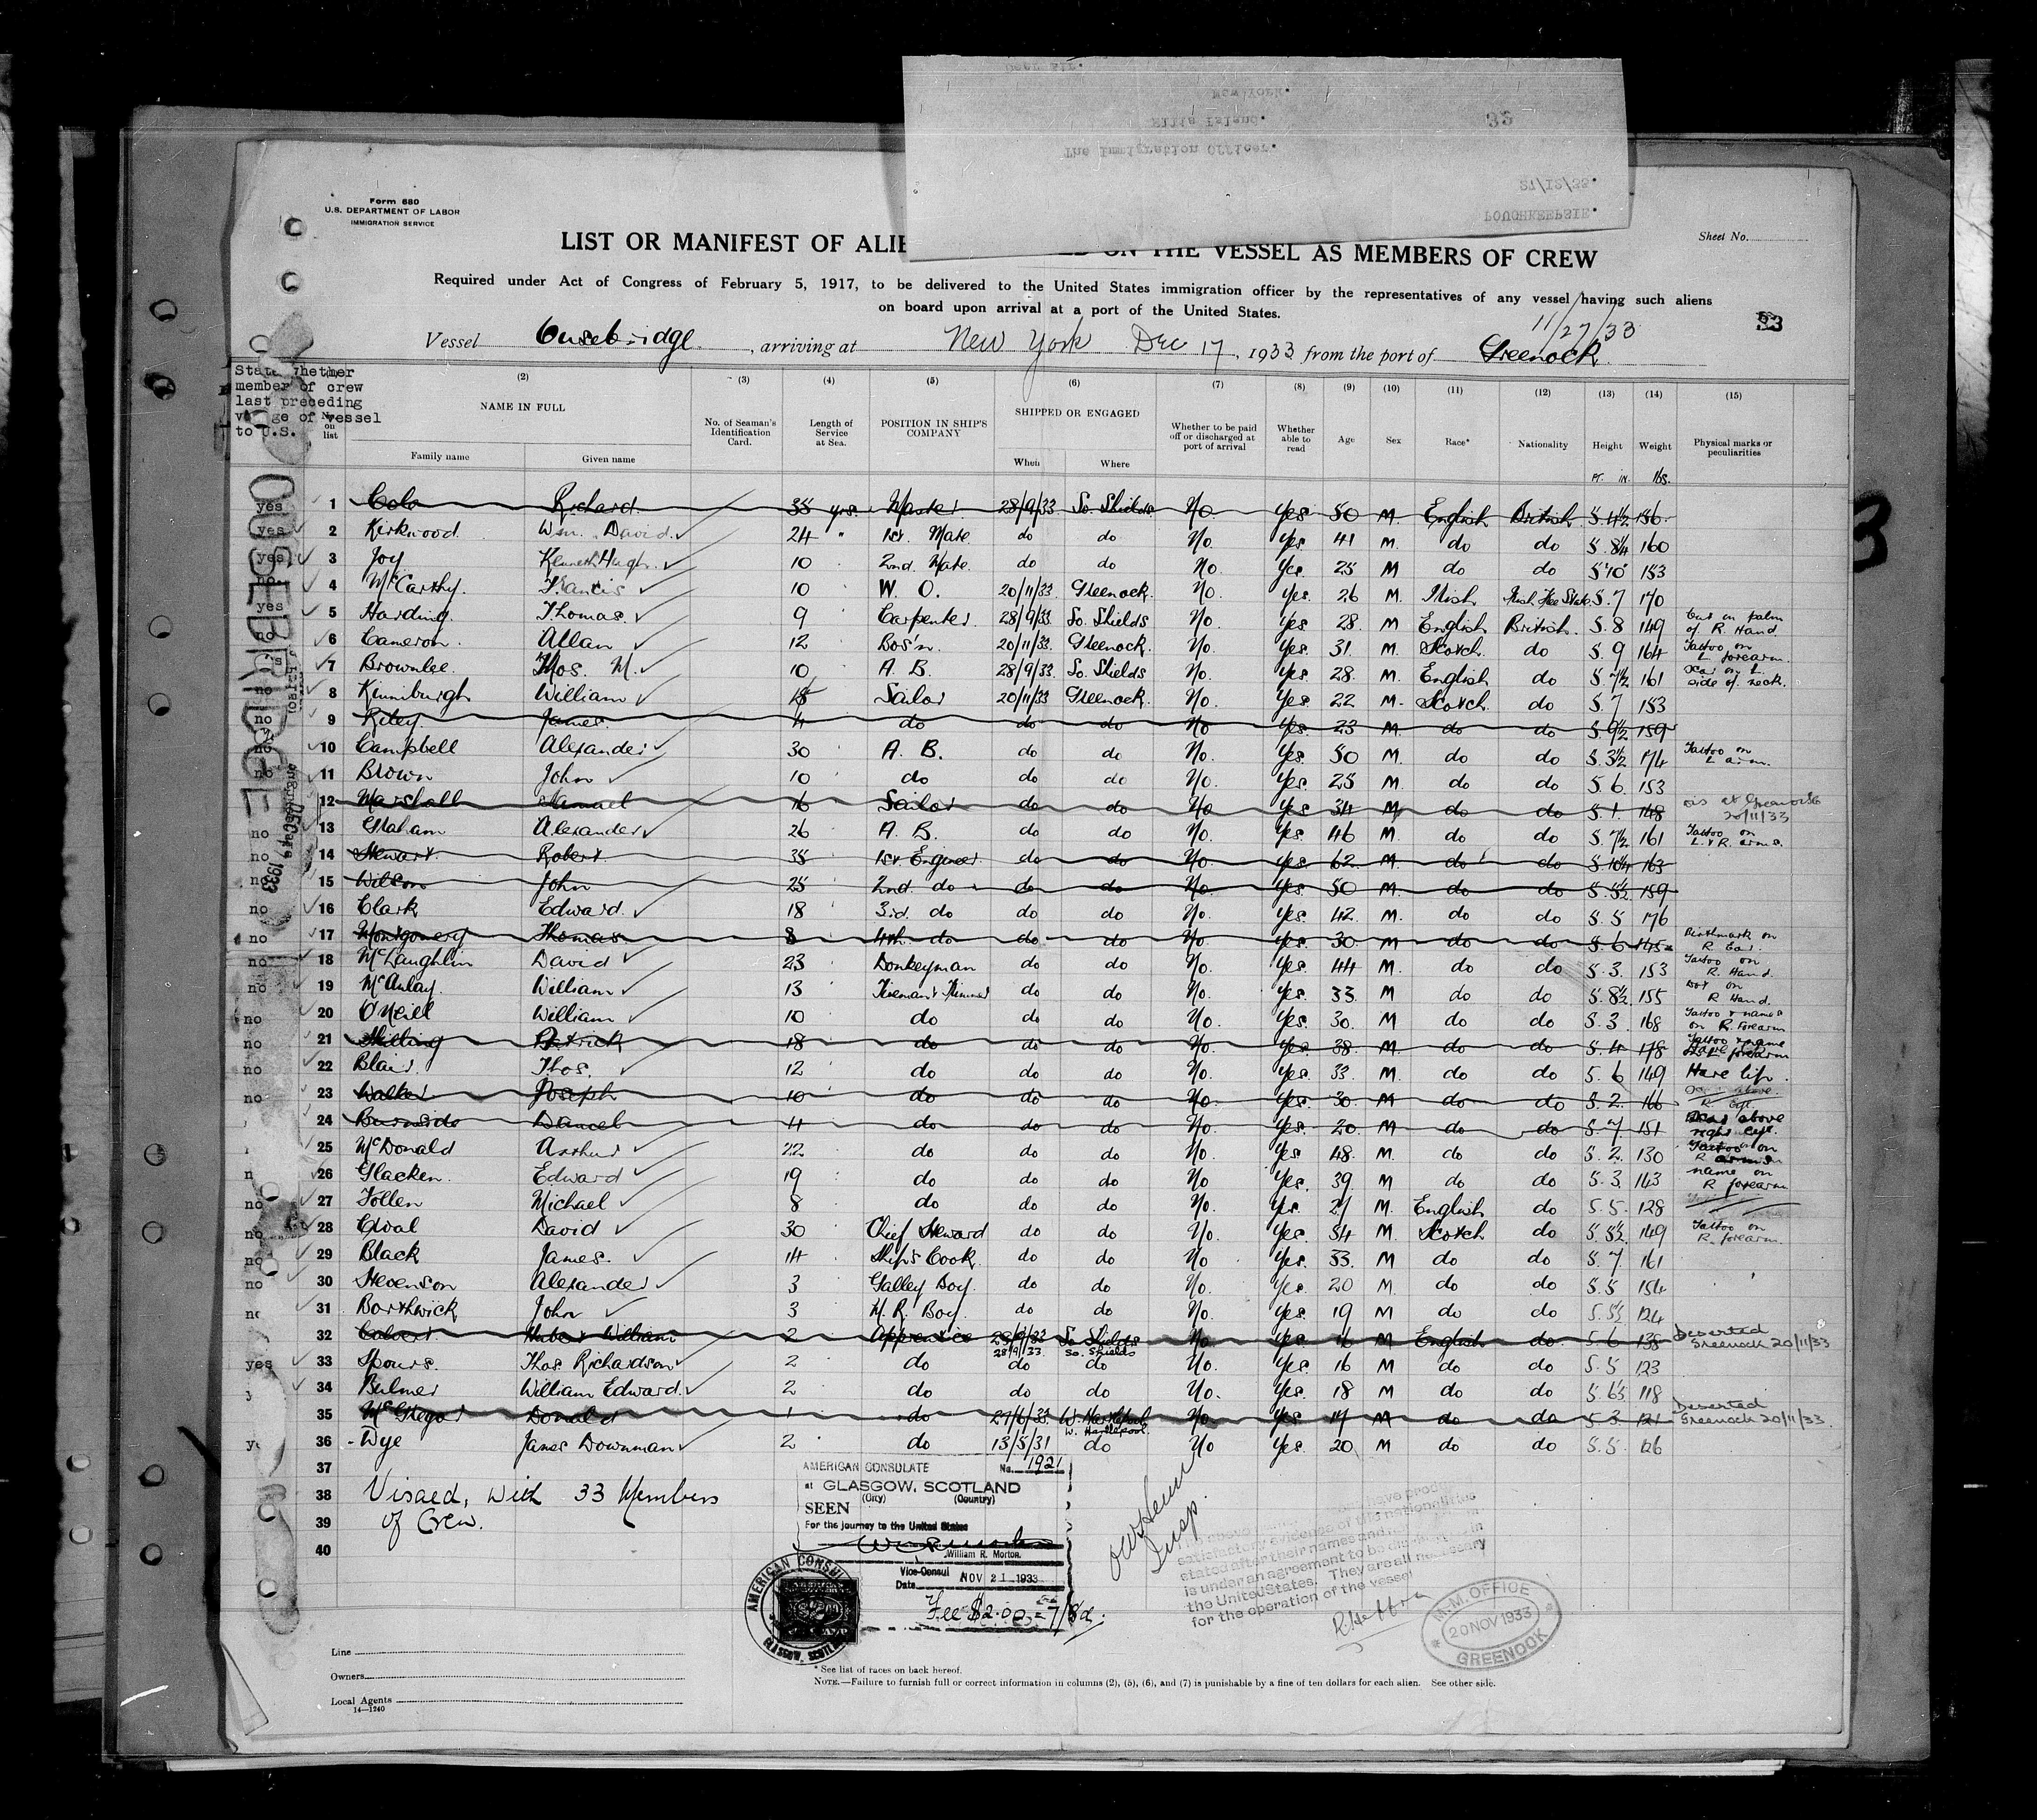 POUGHKEEPSIE.
27/12/33.
The Immigration Officer.
Ellis Island. 33
New York.
Dear Sir.
Form 680
U.S. DEPARTMENT OF LABOR
IMMIGRATION SERVICE
Sheet No.
LIST OR MANIFEST OF ALIE ED ON THE VESSEL AS MEMBERS OF CREW
Required under Act of Congress of February 5, 1917, to be delivered to the United States immigration officer by the representatives of any vessel having such aliens
on board upon arrival at a port of the United States.
11/27/33
Vessel Ousebridge, arriving at New York Dec 17, 1933 from the port of Greenock.
State whether member of crew last preceding voyage of vessel to U.S.
No. on list
(2) NAME IN FULL Family name Given name
(3) No. of Seaman's Identification Card.
(4) Length of Service at Sea.
(5) POSITION IN SHIP'S COMPANY
(6) SHIPPED OR ENGAGED When Where
(7) Whether to be paid off or discharged at port of arrival
(8) Whether able to read
(9) Age
(10) Sex
(11) Race*
(12) Nationality
(13) Height
(14) Weight
(15) Physical marks or peculiarities
Ft. In. lbs.
yes 1 Richard 35 yrs. Master 28/9/33 So. Shields No. Yes 50 M. English British 5.4½ 156
yes 2 Kirkwood Wm. David 24 " 1st. Mate do do No. Yes 41 M. do do 5.8¼ 160
yes 3 Joy Kenneth Hugh 10 2nd. Mate do do No. Yes 25 M do do 5'10" 153
no. 4 McCarthy. Francis 10 W. O. 20/11/33 Greenock. No. Yes. 26 M. Irish Irish Free State 5.7 170
yes 5 Harding. Thomas 9 Carpenter 28/9/33 So. Shields No. Yes 28 M English British. 5.8 149 Cut in palm of R. Hand
no 6 Cameron. Allan 12 Bos'n. 20/11/33 Greenock. No. Yes. 31 M. Scotch. do 5.9 164 Tattoo on L forearm.
7 Brownlee. Thos. M. 10 A. B. 28/9/33 So. Shields No. Yes 28. M. English do 5.7½ 161 Scar on L side of neck.
no 8 Kinniburgh William Sailor 20/11/33 Greenock. No. Yes 22 M. Scotch do 5.7 153
no 9 Riley James 4 do do do No Yes 23 M do do 5.9½ 159
no 10 Campbell Alexander 30 A. B. do do No. Yes 50 M. do do 5.3½ 174 Tattoo on L arm.
no 11 Brown John 10 do do do No. Yes. 25 M. do do 5.6. 153
12 Marshall Samuel 16 Sailor do do No Yes 34 M do do 5.1. 148 at Greenock 20/11/33
no 13 Graham Alexander 26 A. B. do do No. Yes 46 M. do do 5.7½ 161 Tattoo on L. & R. arms.
no 14 Stewart. Robert 35 1st Engineer do do No Yes 62 M. do do 5.10¼ 163
no 15 Wilson John 25 2nd. do do do No. Yes 50 M. do do 5.5½ 159
no 16 Clark Edward 18 3rd. do do do No. Yes. 42. M. do do 5.5 176
no 17 Montgomery Thomas 8 4th. do do do No Yes. 30 M do do 5.6 145 Birthmark on R. Ear.
no 18 McLaughlin David 23 Donkeyman do do No. Yes. 44 M. do do 5.3. 153 Tattoo on R. Hand.
no 19 McAulay. William 13 Fireman & Trimmer do do No. Yes. 33. M do do 5.8½ 155 Dot on R Hand.
no 20 O'Neill William 10 do do do No. Yes. 30. M do do 5.3. 168 Tattoo & names on R. forearm
no 21 Patrick 18 do do do No. Yes 38. M. do do 5.4 178 Tattoo & name on L forearm
no 22 Blair. Thos. 12 do do do No. Yes. 33. M. do do 5.6 149 Hare lip.
no 23 Walker Joseph 10 do do do No. Yes. 30. M do do 5.2. 166
24 Burnside Daniel 4 do do do No. Yes. 20. M do do 5.7 151 Scar above right eye.
25 McDonald Arthur 22 do do do No. Yes 48. M. do do 5.2. 130 Tattoo on R
n 26 Glacken. Edward 19 do do do No Yes. 39 M. do do 5.3. 143 name on R forearm
no 27 Follen Michael 8 do do do No. Yes. 21 M. English do 5.5. 128
no 28 David 30 Chief Steward do do No. Yes 54 M. Scotch do 5.5½ 149 Tattoo on R. forearm.
no 29 Black James. 14 Ship's Cook. do do No Yes 33. M do do 5.7. 161
no 30 Stevenson Alexander 3 Galley Boy. do do No. Yes. 20 M. do do 5.5 154
no 31 Borthwick John 3 M. R. Boy. do do No. Yes 19 M do do 5.5½ 124
32 Calvert. Hubert William 2 Apprentice 28/9/33 So. Shields No Yes 16 M English do 5.6 138 Deserted Greenock 20/11/33
yes 33 Spours. Thos Richardson 2 do 28/9/33. do So. Shields do No. Yes. 16 M do do 5.5 123
34 Bulmer William Edward. 2 do do do No. Yes. 18 M do do 5.6½ 118
35 McGregor Donald 1 do 27/6/33 W. Hartlepool No Yes 17 M do do 5.3. 121 Deserted Greenock 20/11/33.
36 Wye James Downman 2 do 13/5/31 W. Hartlepool. do No Yes. 20 M do do 5.5. 126
37
38 Visaed, with 33 Members
39 of Crew.
40
OUSEBRIDGE
DEC 1933
AMERICAN CONSULATE No. 1921
at GLASGOW, SCOTLAND
(City) (Country)
SEEN
For the journey to the United States
William R. Morton.
Vice-Consul
Date NOV 21 1933
Fee $2.00 = 7/8d.
AMERICAN CONSUL
GLASGOW, SCOTL
Insp.
satisfactory evidence of the nationalities
stated after their names and
is under an agreement to be discharged in
the United States. They are all necessary
for the operation of the vessel
M.M. OFFICE
20 NOV 1933
GREENOCK
Line
Owners
Local Agents
14—1240
* See list of races on back hereof.
NOTE.—Failure to furnish full or correct information in columns (2), (5), (6), and (7) is punishable by a fine of ten dollars for each alien. See other side.